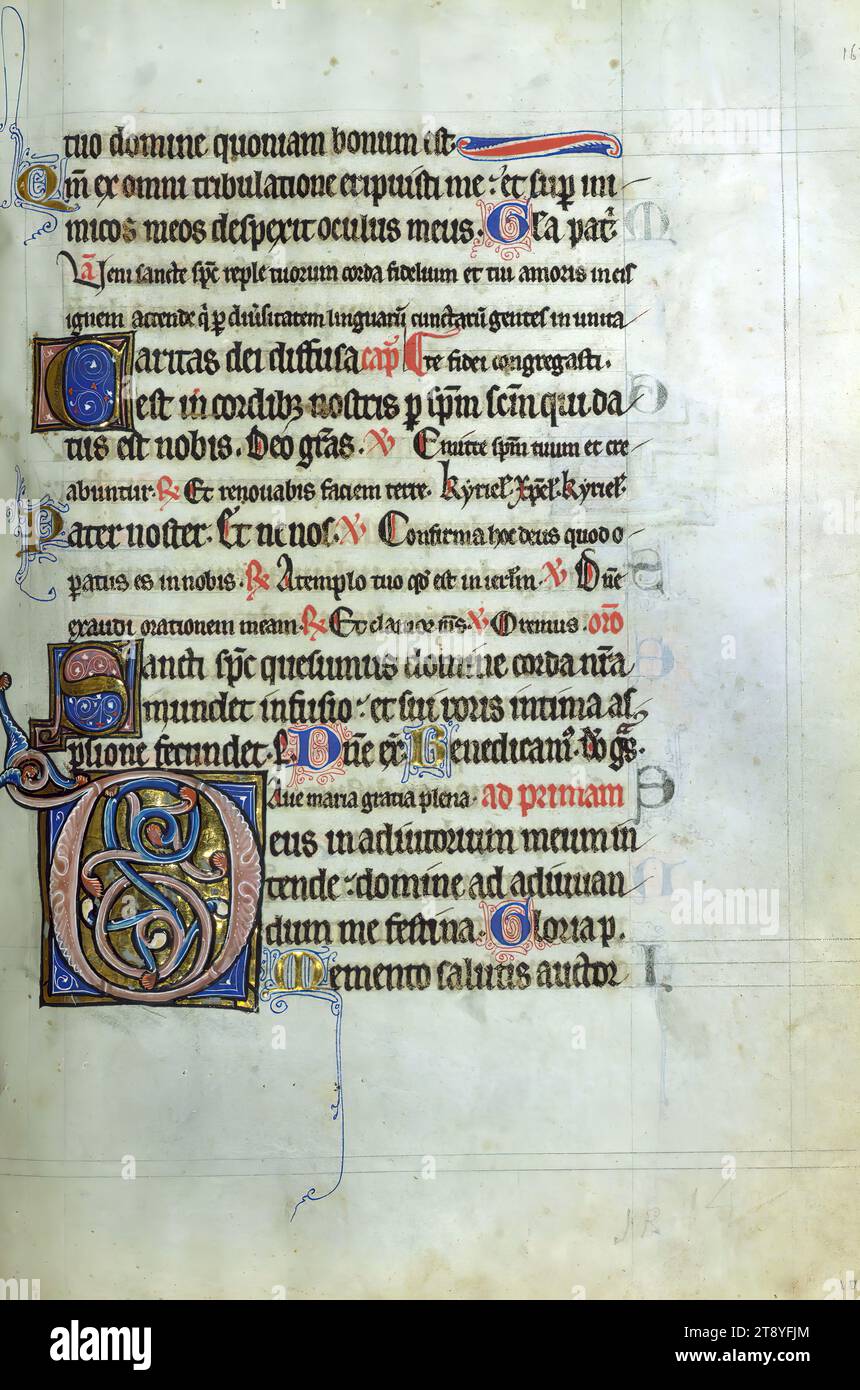 tuo domine quoniam bonum est
Qm̄ ex omni tribulatione eripuisti me : et sup inimicos meos despexit oculus meus. Gl̄a pat̄
Veni sancte sp̄c reple tuorum corda fidelium et tui amoris in eis
ignem accende q̇ p diuˀsitatem linguarū cunctarū gentes in unita
Caritas dei diffusa cap̄ te fidei congregasti.
est in cordibꝫ nostris p sp̄m sc̄m qui da
tus est nobis. Deo gr̄as. ℣ Emitte sp̄m tuum et cre
abuntur. ℟ Et renouabis faciem terre. kyriel̄. xp̄el̄. kyriel̄.
Pater noster. Et ne nos. ℣ Confirma hoc deus quod o
patus es in nobis. ℟ A templo tuo qd̄ est in ierl̄m. ℣ Dn̄e
exaudi orationem meam. ℟ Et clamor m̄s. ℣ Oremus. or̄o
Sancti sp̄c quesumus domine corda nr̄a
mundet infusio : et sui roris intima as
psione fecundet. P. Dn̄e ex̄. Benedicamˀ. Do gr̄s.
Aue maria gratia plena. ad primam
Deus in adiutorium meum in
tende : domine ad adiuuan
dum me festina. Gloria p.
Memento salutis auctor
alamy
alamy
Image ID: 2T8YFJM
www.alamy.com